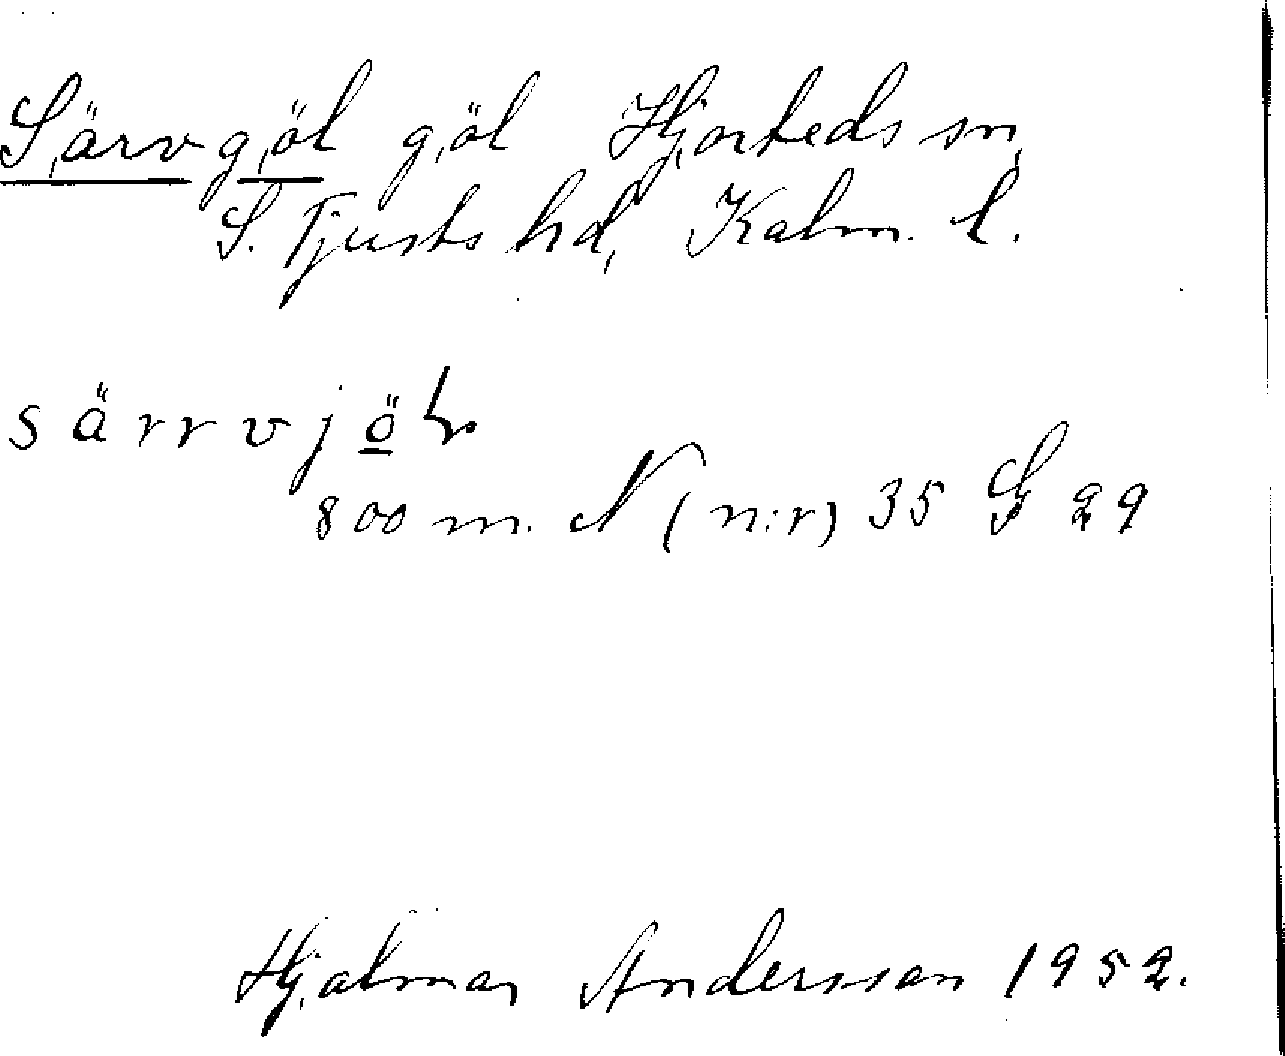 Särvgöl göl Hjorteds sn,
S. Tjusts hd, Kalm. l.
särrvjö̲ɫ
800 m. N (n:r) 35 G 29
Hjalmar Andersson 1952.